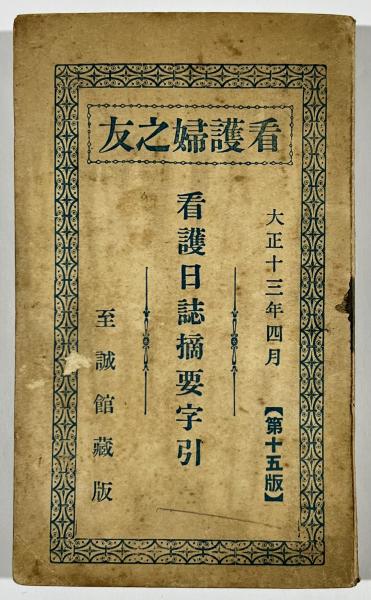 看護婦之友
大正十三年四月
【第十五版】
看護日誌摘要字引
至誠館藏版